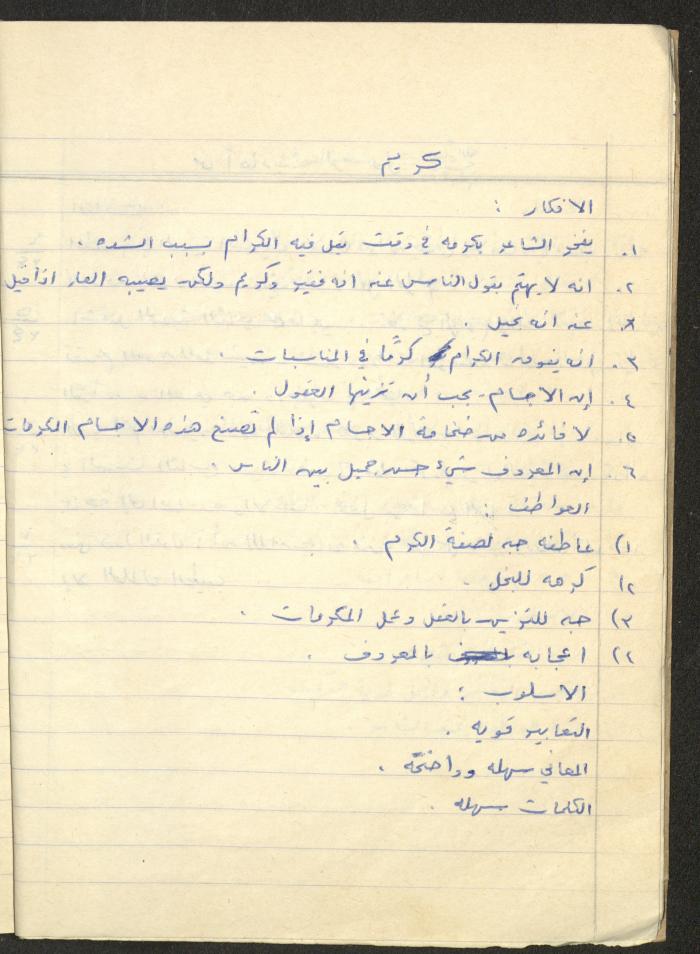 كريم
الافكار :
١. يفخر الشاعر بكرمه في وقت يقل فيه الكرام بسبب الشده .
٢. انه لا يهتم بقول الناس عنه انه فقير وكريم ولكن يصيبه العار اذا قيل
عنه انه بخيل .
٣. انه يفوق الكرام كرمًا في المناسبات .
٤. إن الاجسام يجب أن تزينها العقول .
٥. لا فائده من ضخامة الاجسام إذا لم تصنع هذه الاجسام المكرمات
٦. إن المعروف شيء حسن جميل بين الناس .
العواطف :
١) عاطفة حبه لصفة الكرم .
٢) كرهه للبخل .
٣) حبه للتزين بالعقل وعمل المكرمات .
٤) اعجابه بالمعروف .
الاسلوب :
التعابير قويه .
المعاني سهله وواضحة .
الكلمات سهله .